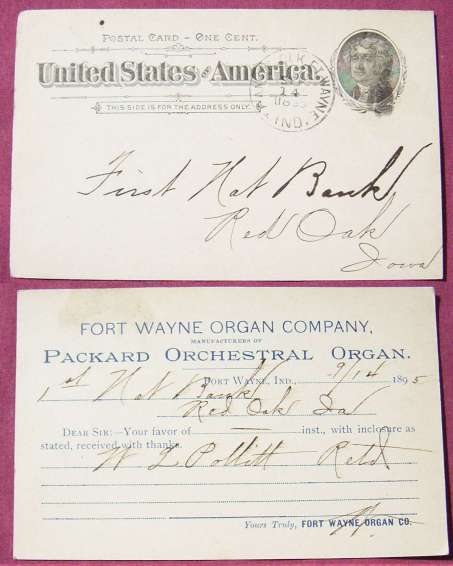 POSTAL CARD – ONE CENT.
United States of America.
THIS SIDE IS FOR THE ADDRESS ONLY.
WAYNE, IND.
14
First Nat Bank
Red Oak
Iowa
FORT WAYNE ORGAN COMPANY,
MANUFACTURERS OF
PACKARD ORCHESTRAL ORGAN.
FORT WAYNE, IND., 9/14 1895
1st Nat Bank
Red Oak Ia
DEAR SIR:—Your favor of — inst., with inclosure as
stated, received with thanks.
W L Pollitt Retd
Yours Truly, FORT WAYNE ORGAN CO.